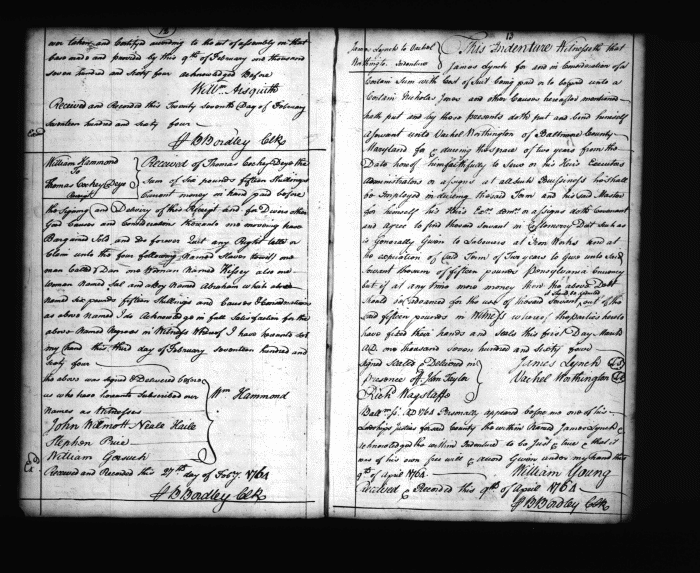 12
were taken and Certifyed according to the act of assembly in that
Case made and provided by this 9th of February one thousand
seven hundred and sixty four acknowledged Before
Willm Aisquith
Received and Recorded this Twenty Seventh Day of February
Seventeen hundred and sixty four
Exd
B Bordley Clk
William Hammond
To
Thomas Cockey Deye
Receipt
Received of Thomas Cockey Deye the
Sum of Six pounds fifteen Shillings
Current money in hand paid before
the Signing and Delivery of this Receipt and for Divers other
Good Causes and Considerations thereunto me moveing have
Bargained Sold and do forever Quit any Right title or
Claim unto the four following Named Slaves to wit one
man Called Dan one Woman Named Hessey also one
Woman Named Sal and a boy Named Abraham which above
Named Six pounds fifteen Shillings and Causes & Considerations
as above Named I do Acknowledge in full Satisfaction for the
above Named Negroes in Witness Whereof I have hereunto set
my hand this third day of February Seventeen hundred and
Sixty four
the above was Signed & Delivered before
us who have hereunto Subscribed our
Names as Witnesses
Wm Hammond
John Wilmott Neale Haile
Stephen Price
William
Exd
Received and Recorded this 27th day of Feby 1764
B Bordley Clk
13
James Lynch to Vachel
Worthington Indenture
This Indenture Witnesseth that
James Lynch for and in Consideration of a
Certain Sum with Cost of Suit being paid or to be paid unto a
Certain Nicholas Jones and other Causes hereafter mentioned
hath put and by these presents doth put and bind himself
a Servant unto Vachel Worthington of Baltimore County
Maryland for & during the space of two years from the
Date hereof him faithfully to Serve or his Heirs Executors
Administrators or assigns at all such Bussiness he shall
be Employed in dureing the said Term and his said Master
for himself his Heirs Exrs Admrs or assigns doth Covenant
and agree to find the said Servant in Customery Diet such as
is Generally Given to Labourers at Iron Works and at
the expiration of said Term of two years to Give unto said
Servant the sum of fifteen pounds Pensylvania Currency
but if at any time more money then the above Debt
Should be advanced for the use of the said Servant to be out of the
said fifteen pounds in Witness whereof the parties hereto
have fixed their hands and Seals this first Day March
A.D. one thousand seven hundred and Sixty four
Signed Sealed & Delivered in
presence of John Taylor
Richd Wagstaffe
James Lynch
Vachel Worthington
Baltr Ss. AD 1764 Personally appeared before me one of his
Lordships Justices for said County the within Named James Lynch &
acknowledged the within Indenture to be Just & true & that it
was of his own free will & accord Given under my hand this
9th of April 1764
William Young
Received & Recorded this 9th of April 1764
B Bordley Clk